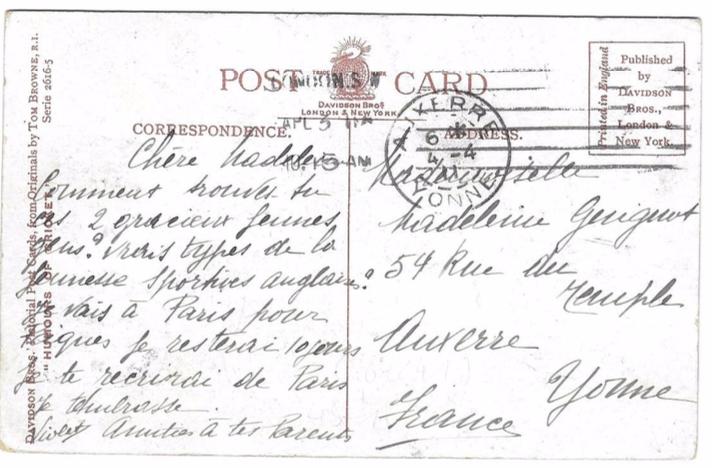 DAVIDSON BROS.' Pictorial Post Cards, from Originals by TOM BROWNE, R.I.
Serie 2616-5
"HUMOURS OF CRICKET."
POST CARD
TRADE MARK
DAVIDSON BROS.
LONDON & NEW YORK
LONDON. S.W
APL 5
10.15 AM
AUXERRE
YONNE
Printed in England
Published
by
DAVIDSON
BROS.,
London &
New York.
CORRESPONDENCE.
ADDRESS.
Chère Madeleine
Comment trouves tu
ces 2 gracieux jeunes
gens? Vrais types de la
jeunesse sportives anglaise?
Je vais à Paris pour
Pâques je resterai 10 jours
Je te recrirai de Paris
Je t'embrasse
Violet Amitiés à tes Parents
Mademoiselle
Madeleine
54 Rue du
Temple
Auxerre
Yonne
France